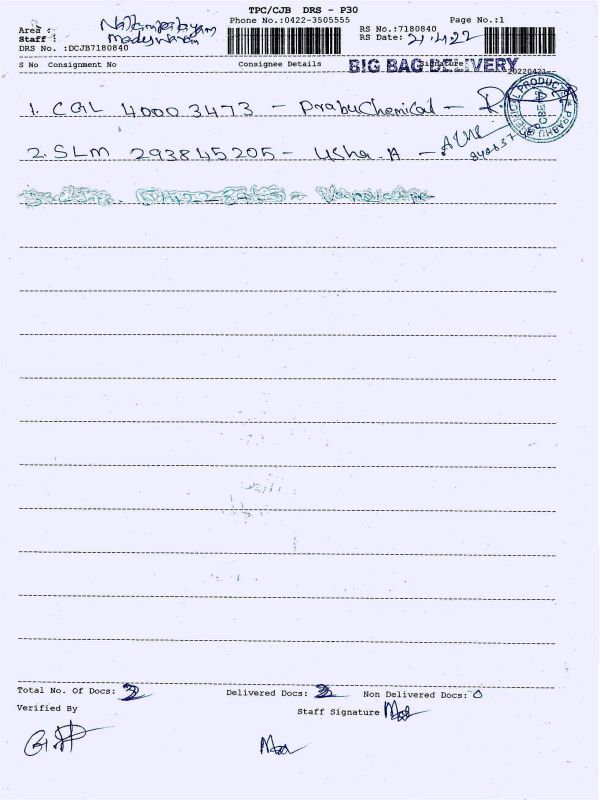 TPC/CJB DRS - P30
Phone No.:0422-3505555 Page No.:1
Area :
Staff : Madeswaran
RS No.:7180840
RS Date: 21.4.22
DRS No. :DCJB7180840
S No Consignment No Consignee Details Signature
BIG BAG DELIVERY
20220421
1. CGL 40003473 - PrabuChemical -
2. SLM 293845205 - Usha.A -
Total No. Of Docs: 2 Delivered Docs: 2 Non Delivered Docs: 0
Verified By Staff Signature